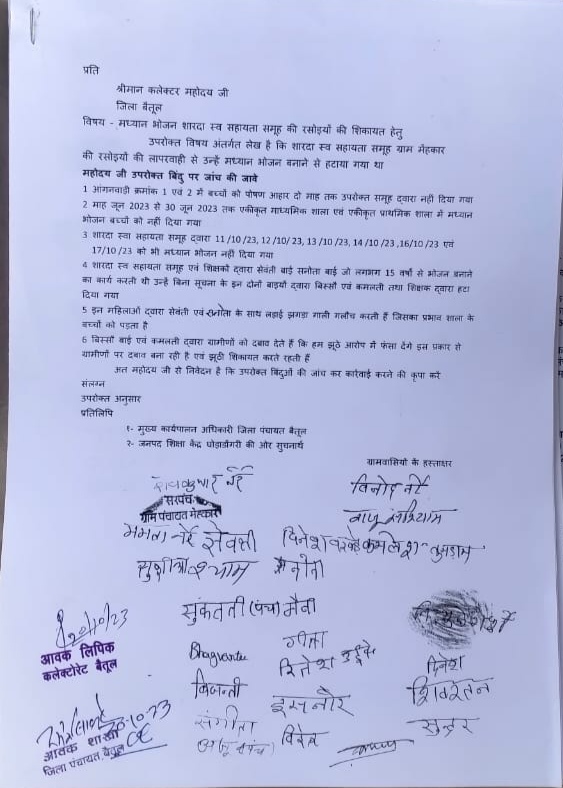 प्रति
श्रीमान कलेक्टर महोदय जी
जिला बैतूल
विषय - मध्यान भोजन शारदा स्व सहायता समूह की रसोइयों की शिकायत हेतु
उपरोक्त विषय अंतर्गत लेख है कि शारदा स्व सहायता समूह ग्राम मेहकार
की रसोइयों की लापरवाही से उन्हें मध्यान भोजन बनाने से हटाया गया था
महोदय जी उपरोक्त बिंदु पर जांच की जावे
1 आंगनवाड़ी क्रमांक 1 एवं 2 में बच्चों को पोषण आहार दो माह तक उपरोक्त समूह द्वारा नहीं दिया गया
2 माह जून 2023 से 30 जून 2023 तक एकीकृत माध्यमिक शाला एवं एकीकृत प्राथमिक शाला में मध्यान
भोजन बच्चों को नहीं दिया गया
3 शारदा स्वा सहायता समूह द्वारा 11/10/23, 12/10/23, 13/10/23, 14/10/23 ,16/10/23 एवं
17/10/23 को भी मध्यान भोजन नहीं दिया गया
4 शारदा स्व सहायता समूह एवं शिक्षकों द्वारा सेवंती बाई सनोता बाई जो लगभग 15 वर्षों से भोजन बनाने
का कार्य करती थी उन्हें बिना सूचना के इन दोनों बाइयों द्वारा बिस्सो एवं कमलती तथा शिक्षक द्वारा हटा
दिया गया
5 इन महिलाओं द्वारा सेवंती एवं सनोता के साथ लड़ाई झगड़ा गाली गलौच करती हैं जिसका प्रभाव शाला के
बच्चों को पड़ता है
6 बिस्सो बाई एवं कमलती द्वारा ग्रामीणों को दबाव देते हैं कि हम झूठे आरोप में फंसा देंगे इस प्रकार से
ग्रामीणों पर दबाव बना रही है एवं झूठी शिकायत करते रहती हैं
अत महोदय जी से निवेदन है कि उपरोक्त बिंदुओं की जांच कर कार्रवाई करने की कृपा करें
संलग्न
उपरोक्त अनुसार
प्रतिलिपि
१- मुख्य कार्यपालन अधिकारी जिला पंचायत बैतूल
२- जनपद शिक्षा केंद्र घोड़ाडोंगरी की ओर सूचनार्थ
ग्रामवासियों के हस्ताक्षर
सरपंच
ग्राम पंचायत मेहकार
ममता सेवन्ती दिनेश कमलेश
सुकंतती (पंचा) मैना
20/10/23
गीता
आवक लिपिक
कलेक्टोरेट बैतूल
रितेश उइके दिनेश
बिजन्ती
संगीता
सुन्दर
20.10.23
आवक शाखा
जिला पंचायत बैतूल